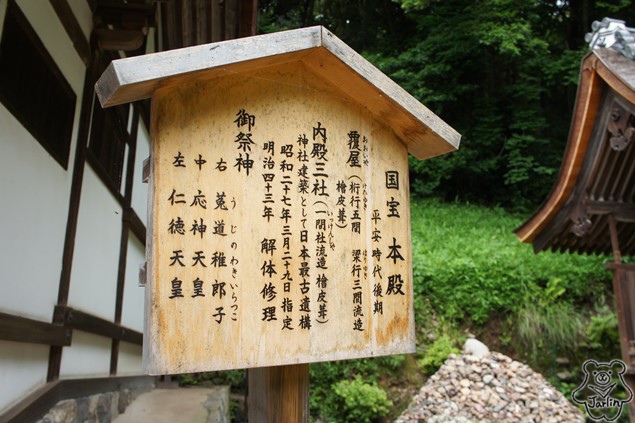 国宝 本殿
平安時代後期
覆屋(桁行五間 梁行三間流造
おおいや けたゆき はりゆき
檜皮葺)
内殿三社(一間社流造 檜皮葺)
いっけんしゃ
神社建築として日本最古遺構
昭和二十七年三月二十九日指定
明治四十三年 解体修理
御祭神
右 菟道稚郎子
うじのわきいらつこ
中 応神天皇
左 仁徳天皇
Jarlin